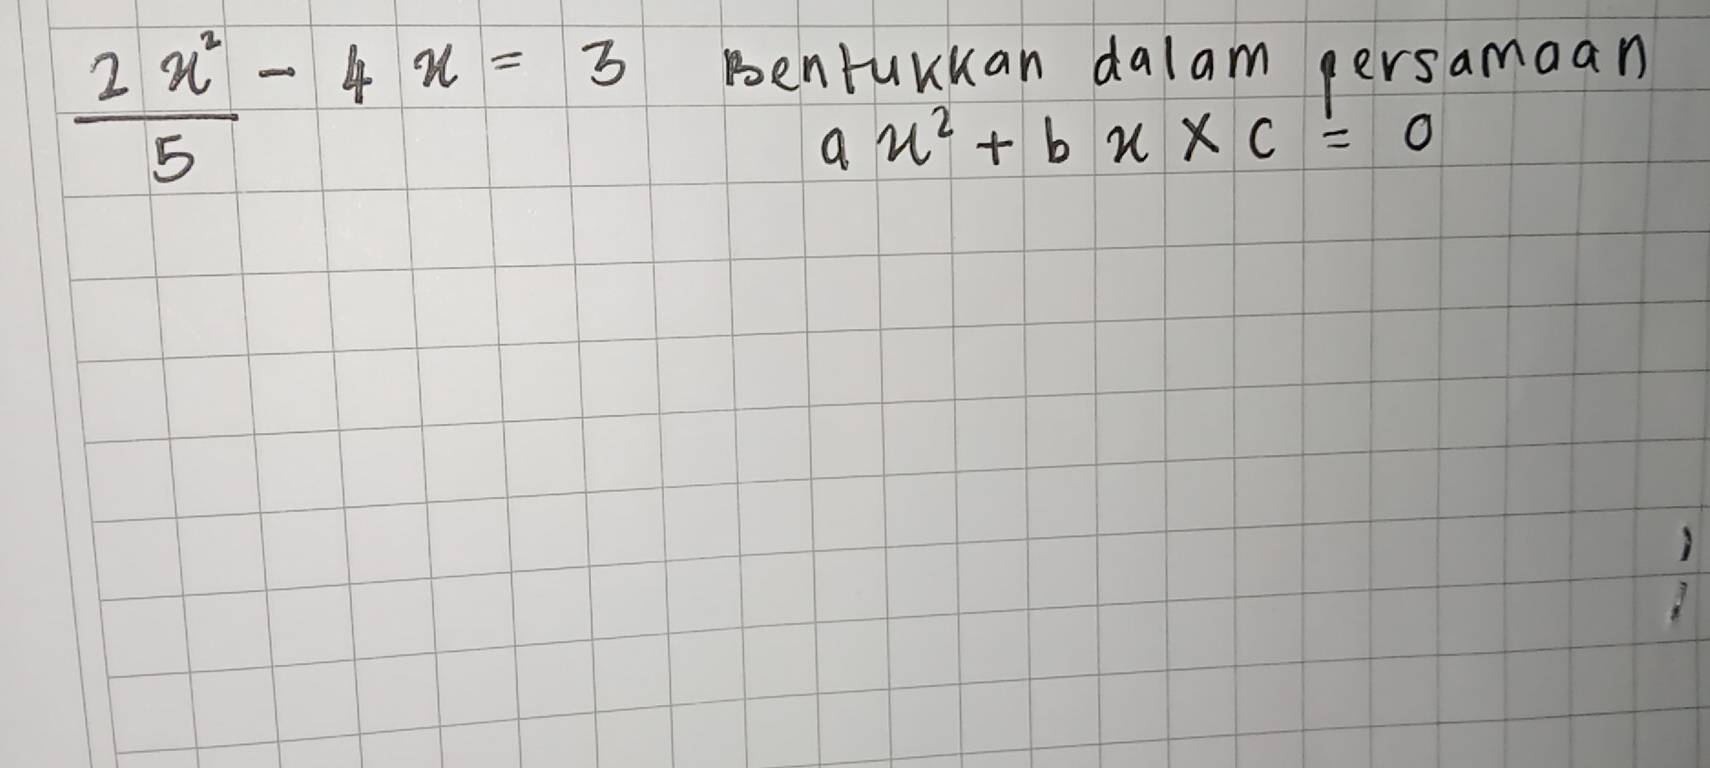 2x² - 4x = 3 Bentukkan dalam persamaan
5 ax² + bx × c = 0